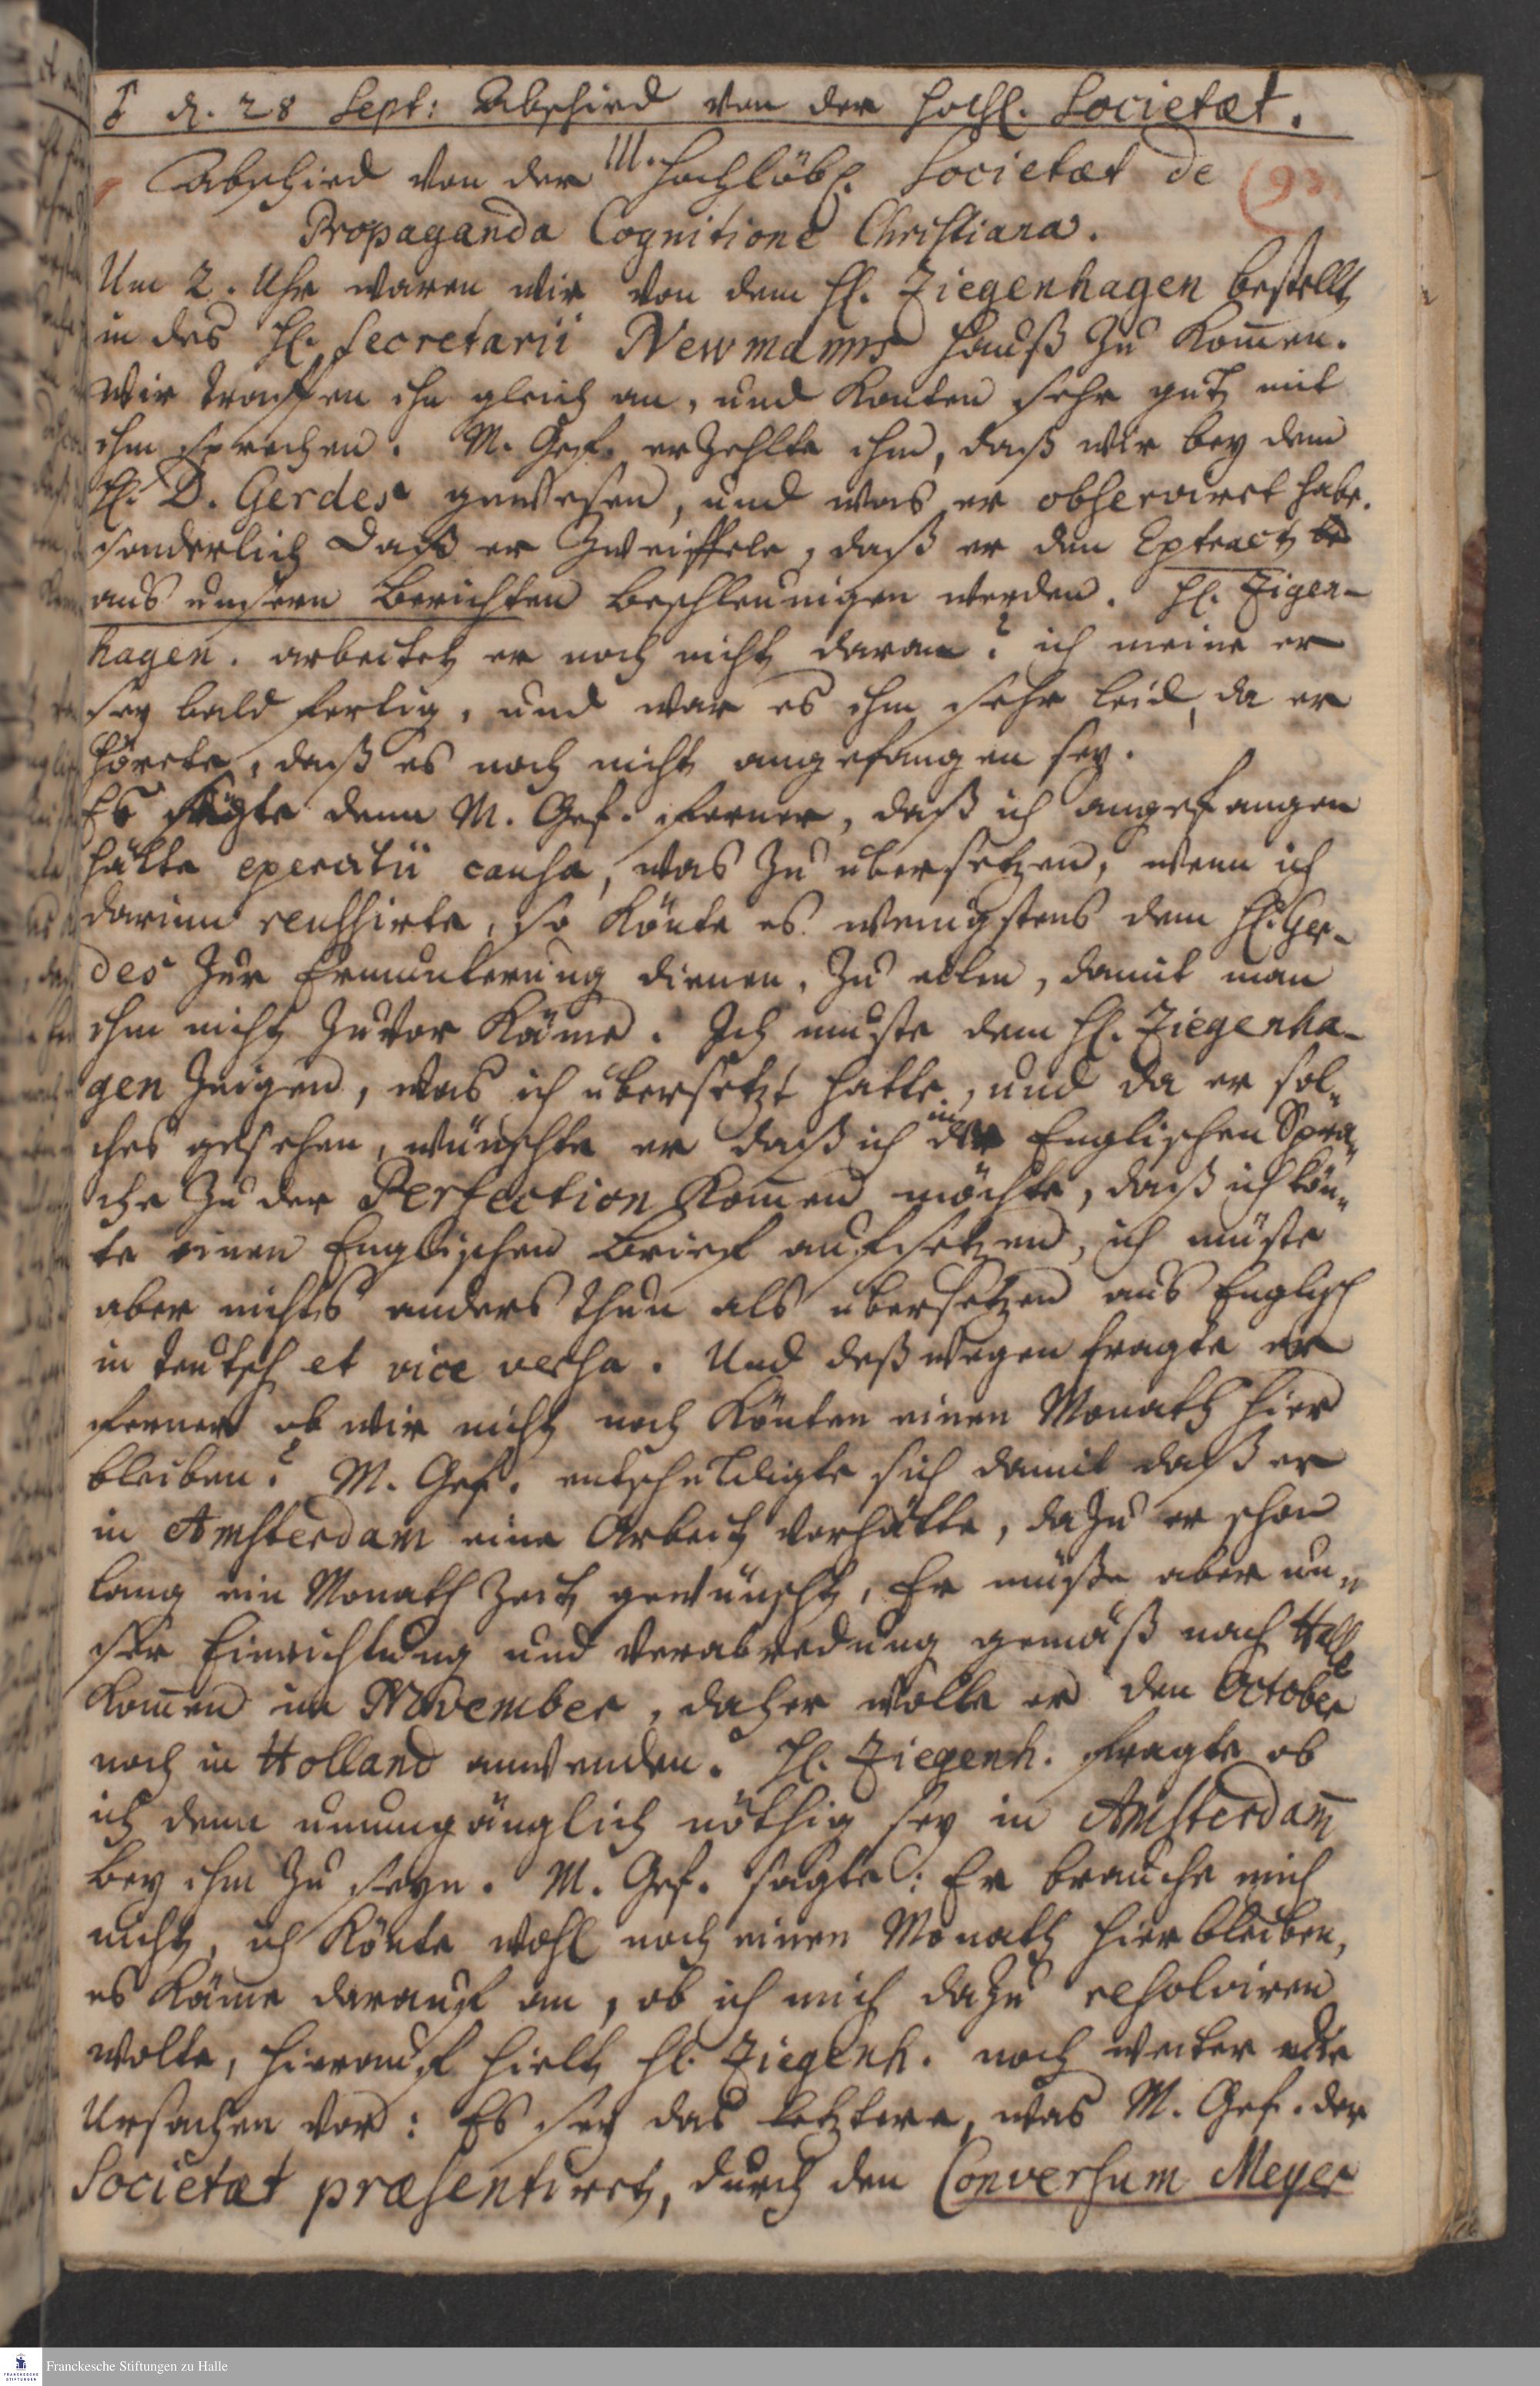 d. 28 Sept: Abschied von der hochl. Societæt.
III.
Abschied von der Hochlöbl. Societæt de
Propaganda Cognitione Christiana.
Um 2. Uhr waren wir von dem H. Ziegenhagen bestellt
in des H. Secretarii Newmanns Hauß zu kom̃en.
Wir traffen ihn gleich an, und konten sehr gut mit
ihm sprechen. M. Gef. erzehlte ihm, daß wir bey dem
H. D. Gerdes gewesen, und was er observiret habe.
sonderlich daß er zweiffele, daß er den Extract
aus unsern Berichten beschleunigen werden. H. Zigen-
hagen. arbeitet er noch nicht daran? ich meine er
sey bald fertig, und war es ihm sehr leid, da er
hörete, daß es noch nicht angefangen sey.
Es sagte denn M. Gef. ferner, daß ich angefangen
hätte exercitii causa, was zu übersetzen, wenn ich
darinn reussirte, so könte es wenigstens dem H. Ger-
des zur Ermunterung dienen, zu eilen, damit man
ihm nicht zuvor käme. Ich muste dem H. Ziegenha-
gen zeigen, was ich übersetzt hatte, und da er sol-
ches gesehen, wünschte er daß ich in der Englischen Spra-
che zu der Perfection kom̃en möchte, daß ich kön-
te einen Englischen Brief aufsetzen, ich müste
aber nichts anders thun als übersetzen aus Englisch
in teutsch et vice versa. Und deßwegen fragte er
ferner ob wir nicht noch könten einen Monath hier
bleiben? M. Gef. entschuldigte sich damit daß er
in Amsterdam eine Arbeit vorhätte, dazu er schon
lang ein Monath Zeit gewünscht, Er müße aber un-
ser Einrichtung und Verabredung gemäß nach Hall
kom̃en im November, daher wolle er den October
noch in Holland anwenden. H. Ziegenh. fragte ob
ich denn unumgänglich nöthig sey in Amsterdam̃
bey ihm zu seyn. M. Gef. sagte: Er brauche mich
nicht, ich könte wohl noch einen Monath hier bleiben,
es käme darauf an, ob ich mich dazu resolviren
wolte, hierauf hielt H. Ziegenh. noch weiter die
Ursachen vor: Es sey das letztere, was M. Gef. der
Societæt præsentiret, durch den Conversum Meyer